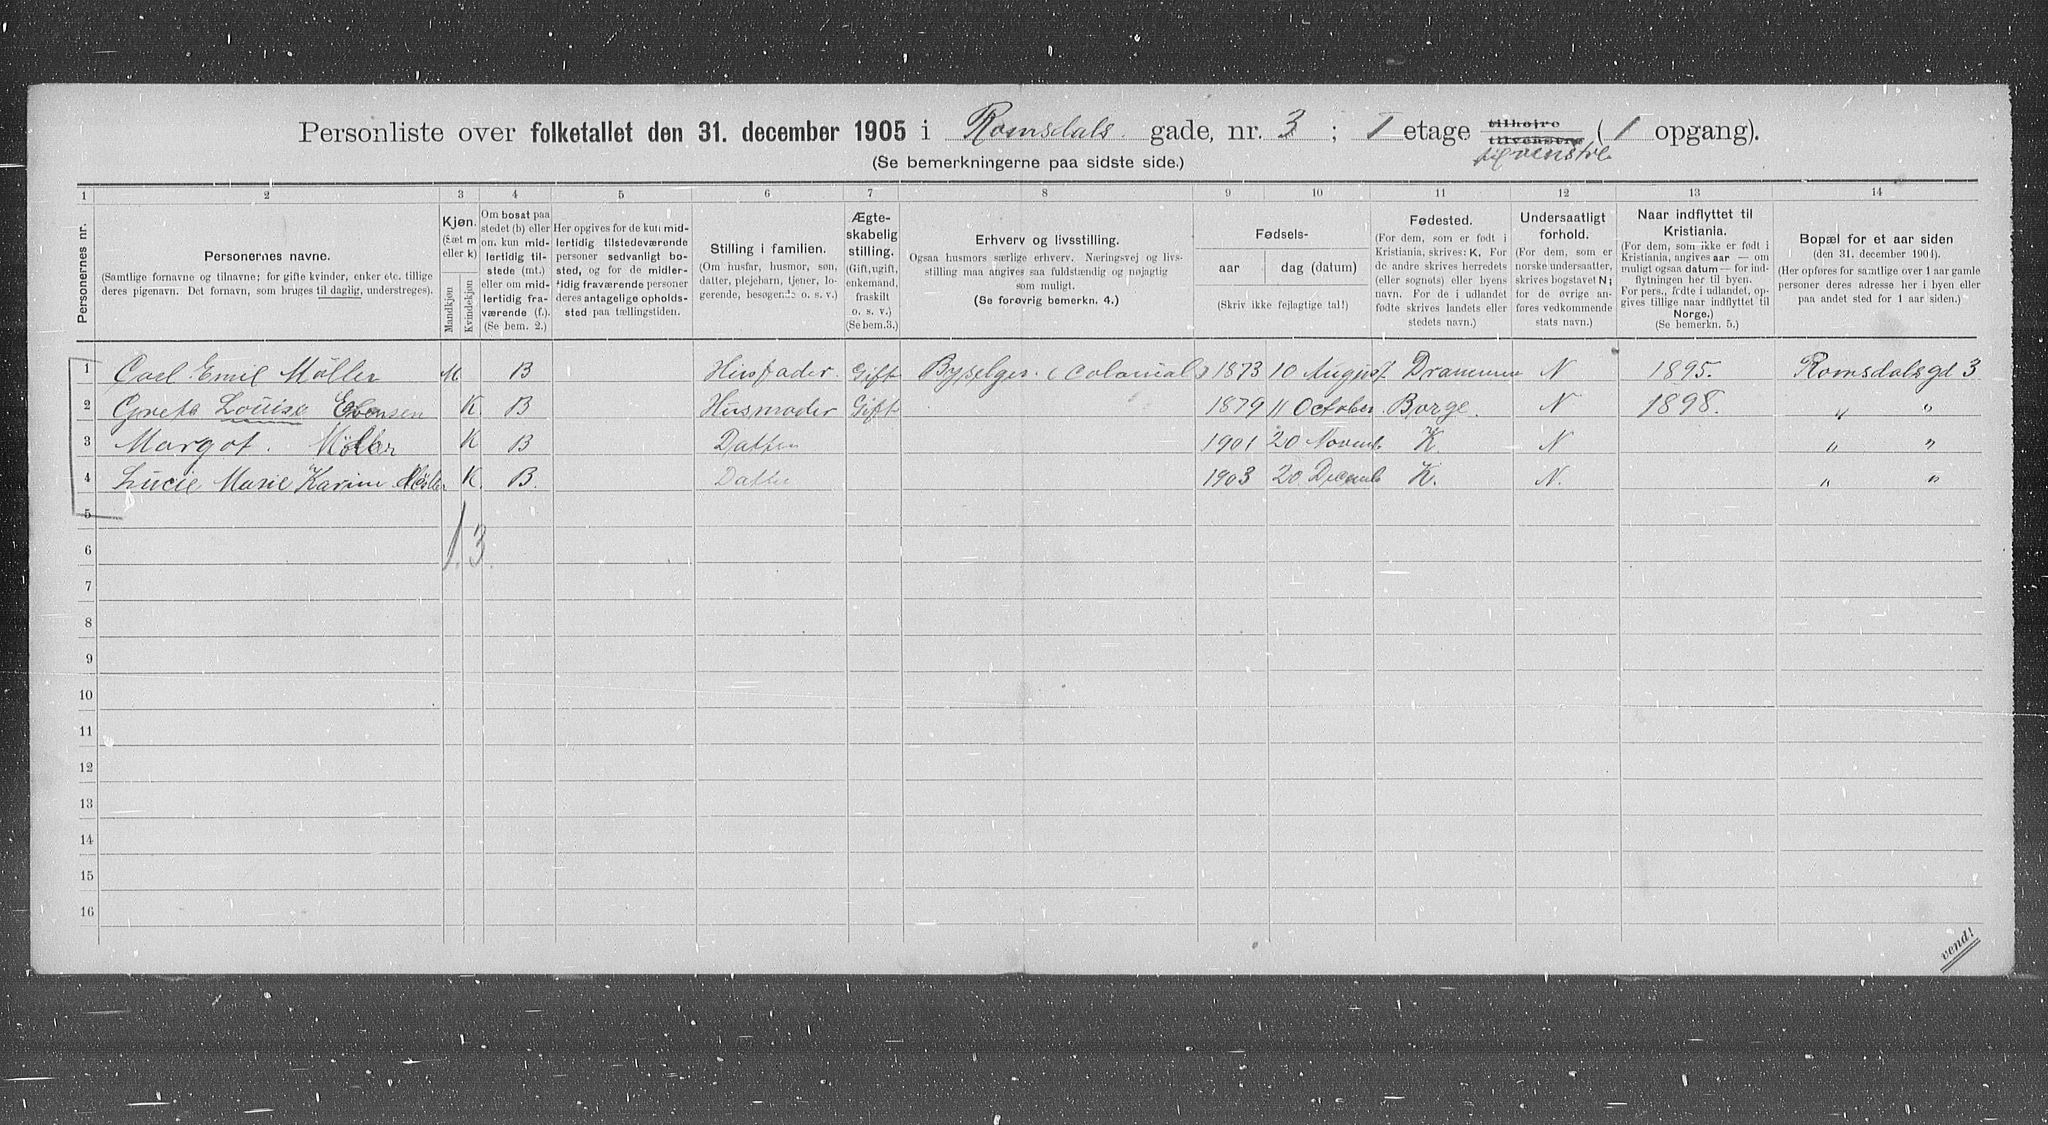 Personliste over folketallet den 31. december 1905 i Romsdals gade, nr. 3 ; I etage tilhøjre tilvenstre (1 opgang).
til venstre
(Se bemerkningerne paa sidste side.)
1 2 3 4 5 6 7 8 9 10 11 12 13 14
Personernes nr.
Personernes navne.
(Samtlige fornavne og tilnavne; for gifte kvinder, enker etc. tillige
deres pigenavn. Det fornavn, som bruges til daglig, understreges).
Kjøn.
(Sæt m
eller k)
Mandkjøn
Kvindekjøn
Om bosat paa
stedet (b) eller
om kun mid-
lertidig til-
stede (mt.)
eller om mid-
lertidig fra-
værende (f.).
(Se bem. 2.)
Her opgives for de kun mid-
lertidig tilstedeværende
personer sedvanlig bo-
sted, og for de midler-
tidig fraværende personer
deres antagelige opholds-
sted paa tællingstiden.
Stilling i familien.
(Om husfar, husmor, søn,
datter, plejebarn, tjener, lo-
gerende, besøgende o. s. v.)
Ægte-
skabelig
stilling.
(Gift, ugift,
enkemand,
fraskilt
o. s. v.)
(Se bem.3.)
Erhverv og livsstilling.
Ogsaa husmors særlige erhverv. Næringsvej og livs-
stilling maa angives saa fuldstændig og nøjagtig
som muligt.
(Se forøvrig bemerkn. 4.)
Fødsels-
aar dag (datum)
(Skriv ikke fejlagtige tal!)
Fødested.
(For dem, som er født i
Kristiania, skrives: K. For
de andre skrives herredets
(eller sognets) eller byens
navn. For de i udlandet
fødte skrives landets eller
stedets navn.)
Undersaatligt
forhold.
(For dem, som er
norske undersaatter,
skrives bogstavet N;
for de øvrige an-
føres vedkommende
stats navn.)
Naar indflyttet til
Kristiania.
(For dem, som ikke er født i
Kristiania, angives aar — om
muligt ogsaa datum — for ind-
flytningen her til byen.
For pers., fødte i udlandet, op-
gives tillige naar indflyttet til
Norge.)
(Se bemerkn. 5.)
Bopæl for et aar siden
(den 31. december 1904).
(Her opføres for samtlige over 1 aar gamle
personer deres adresse her i byen eller
paa andet sted for 1 aar siden.)
1 Carl Emil Møller M B Husfader Gift Bypselger (Colonial) 1873 10 August Drammen N 1895. Romsdalsgd 3
2 Grete Louise Ebensen K B Husmoder Gift 1879 11 October Borge. N 1898. " "
3 Margot. Møller K B Datter 1901 20 Novemb K. N " "
4 Lucie Marie Karine Møller K. B. Datter 1903 20 Decemb K. N. " "
5
1. 3.
6
7
8
9
10
11
12
13
14
15
16
vend!